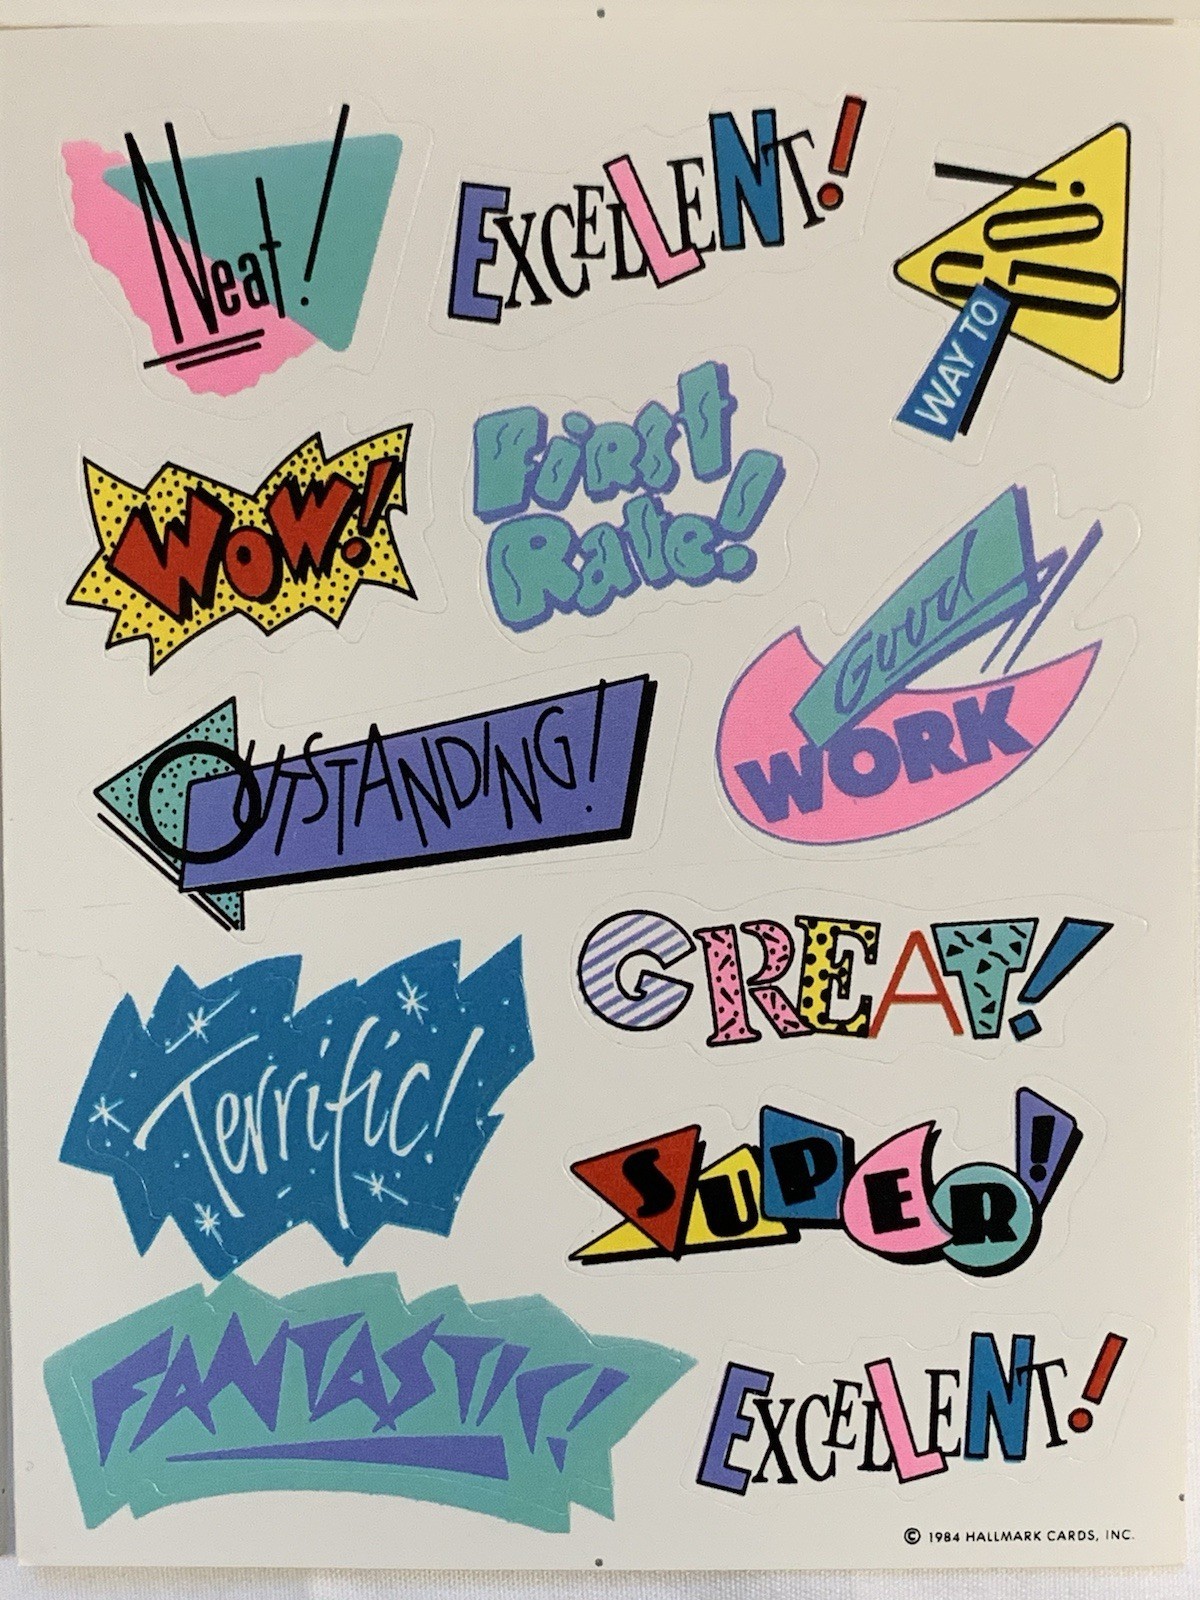 Neat!
EXCELLENT!
WAY TO
GO!
WOW!
First
Rate!
Good
WORK
OUTSTANDING!
GREAT!
Terrific!
SUPER!
FANTASTIC!
EXCELLENT!
© 1984 HALLMARK CARDS, INC.